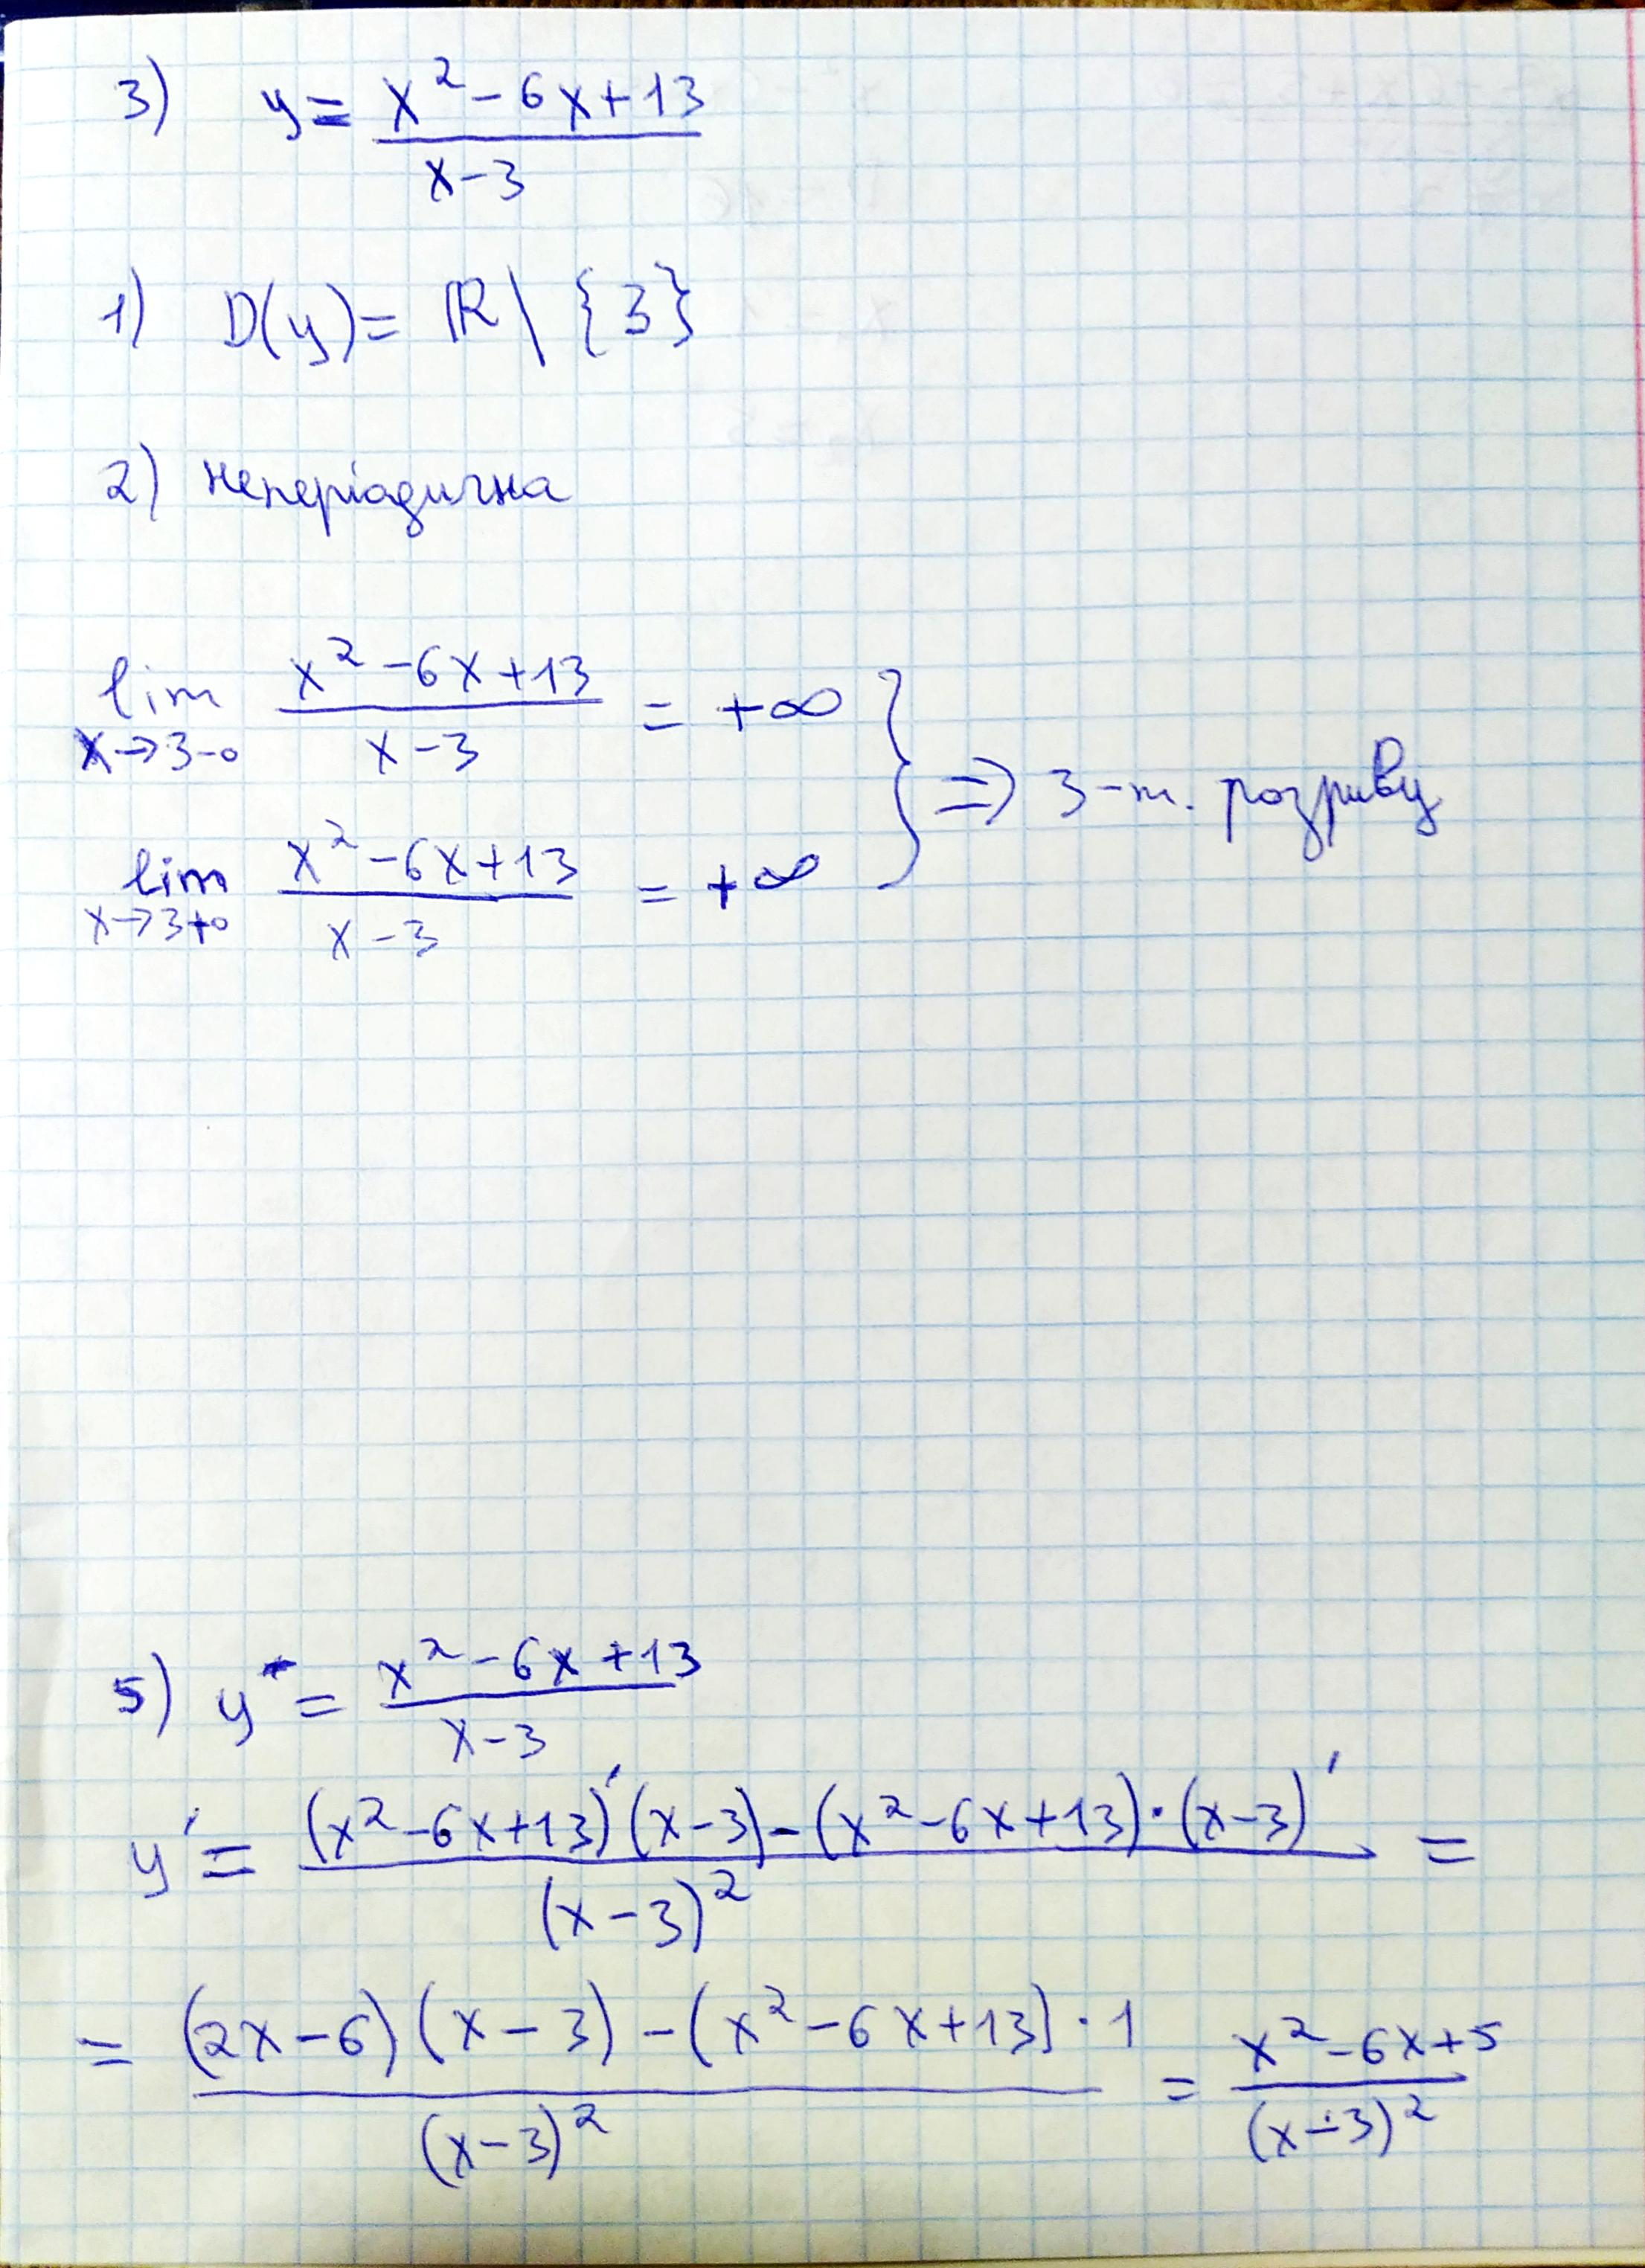 3) y = (x² - 6x + 13) / (x - 3)
1) D(y) = ℝ \ {3}
2) неперіодична
lim x→3-0 (x² - 6x + 13) / (x - 3) = +∞
lim x→3+0 (x² - 6x + 13) / (x - 3) = +∞ } ⇒ 3 - т. розриву
5) y = (x² - 6x + 13) / (x - 3)
y' = ((x² - 6x + 13)' (x - 3) - (x² - 6x + 13) · (x - 3)') / (x - 3)² =
= ((2x - 6) (x - 3) - (x² - 6x + 13) · 1) / (x - 3)² = (x² - 6x + 5) / (x - 3)²